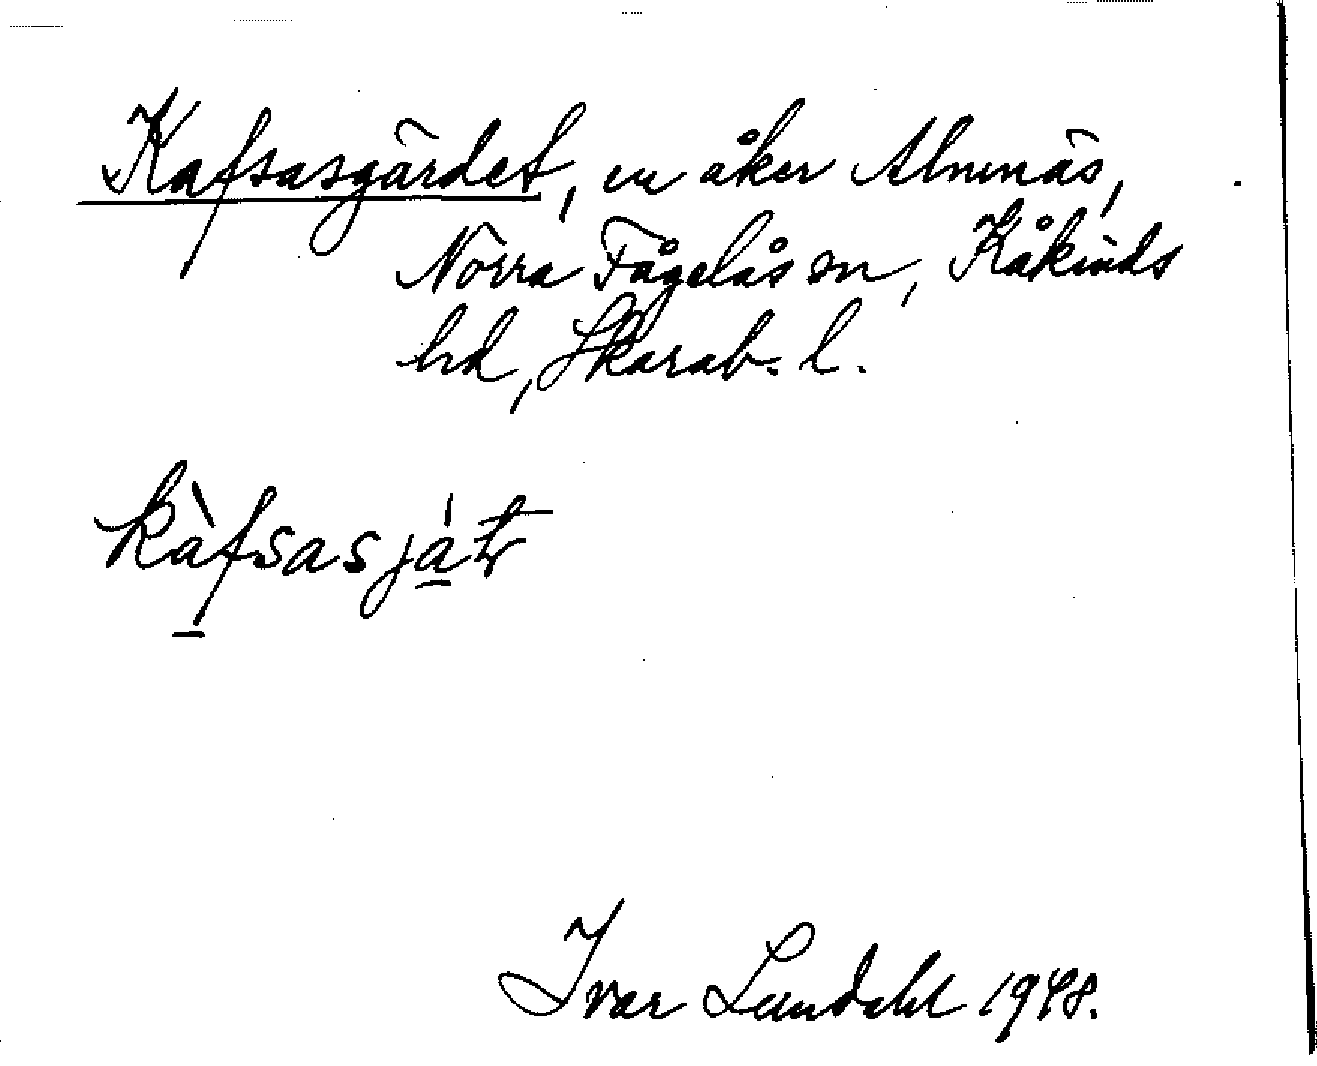 Kafsasgärdet, en åker Almnäs,
Norra Fågelås sn, Kåkinds
hd, Skarab. l.
kàfsasját
Ivar Lundahl 1948.